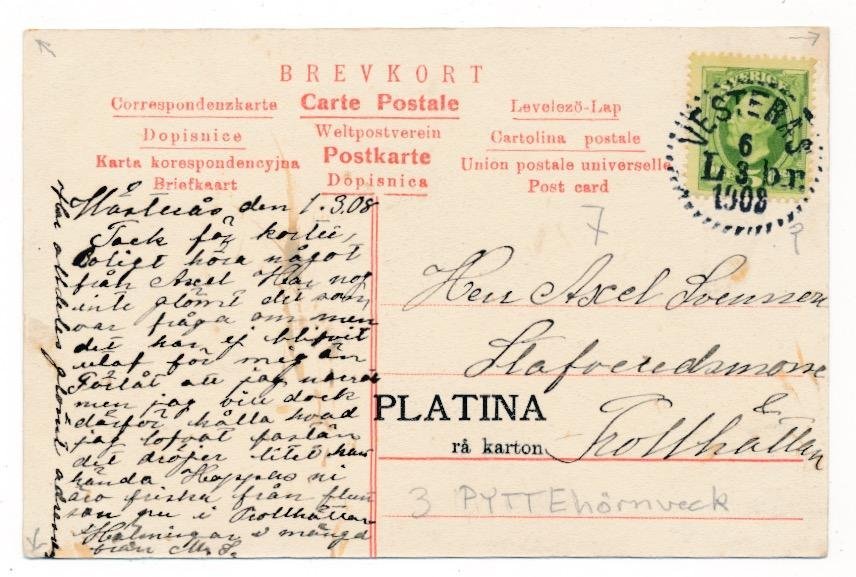 BREVKORT
Correspondenzkarte Carte Postale Levelezö-Lap
Dopisnice Weltpostverein Cartolina postale
Karta korespondencyjna Postkarte Union postale universelle
Briefkaart Dopisnica Post card
SVERIGE
VESTERÅS
6
L 3 br
1908
7
?
den 1.3.08
Tack för kortet,
roligt höra något
från Axel Har nog
inte glömt det som
var fråga om men
det har ej blifvit
utaf för mig än
Förlåt att jag
men jag vill dock
därför hålla hvad
jag lofvat fastän
det dröjer litet kan
hända Hoppas ni
äro friska från
som nu i Trollhättan
Hälsningar i mängd
från M. S.
Har alldeles glömt
Herr Axel Svensson
Stafveredsmosse
Trollhättan
PLATINA
rå karton
3 PYTTEhörnveck